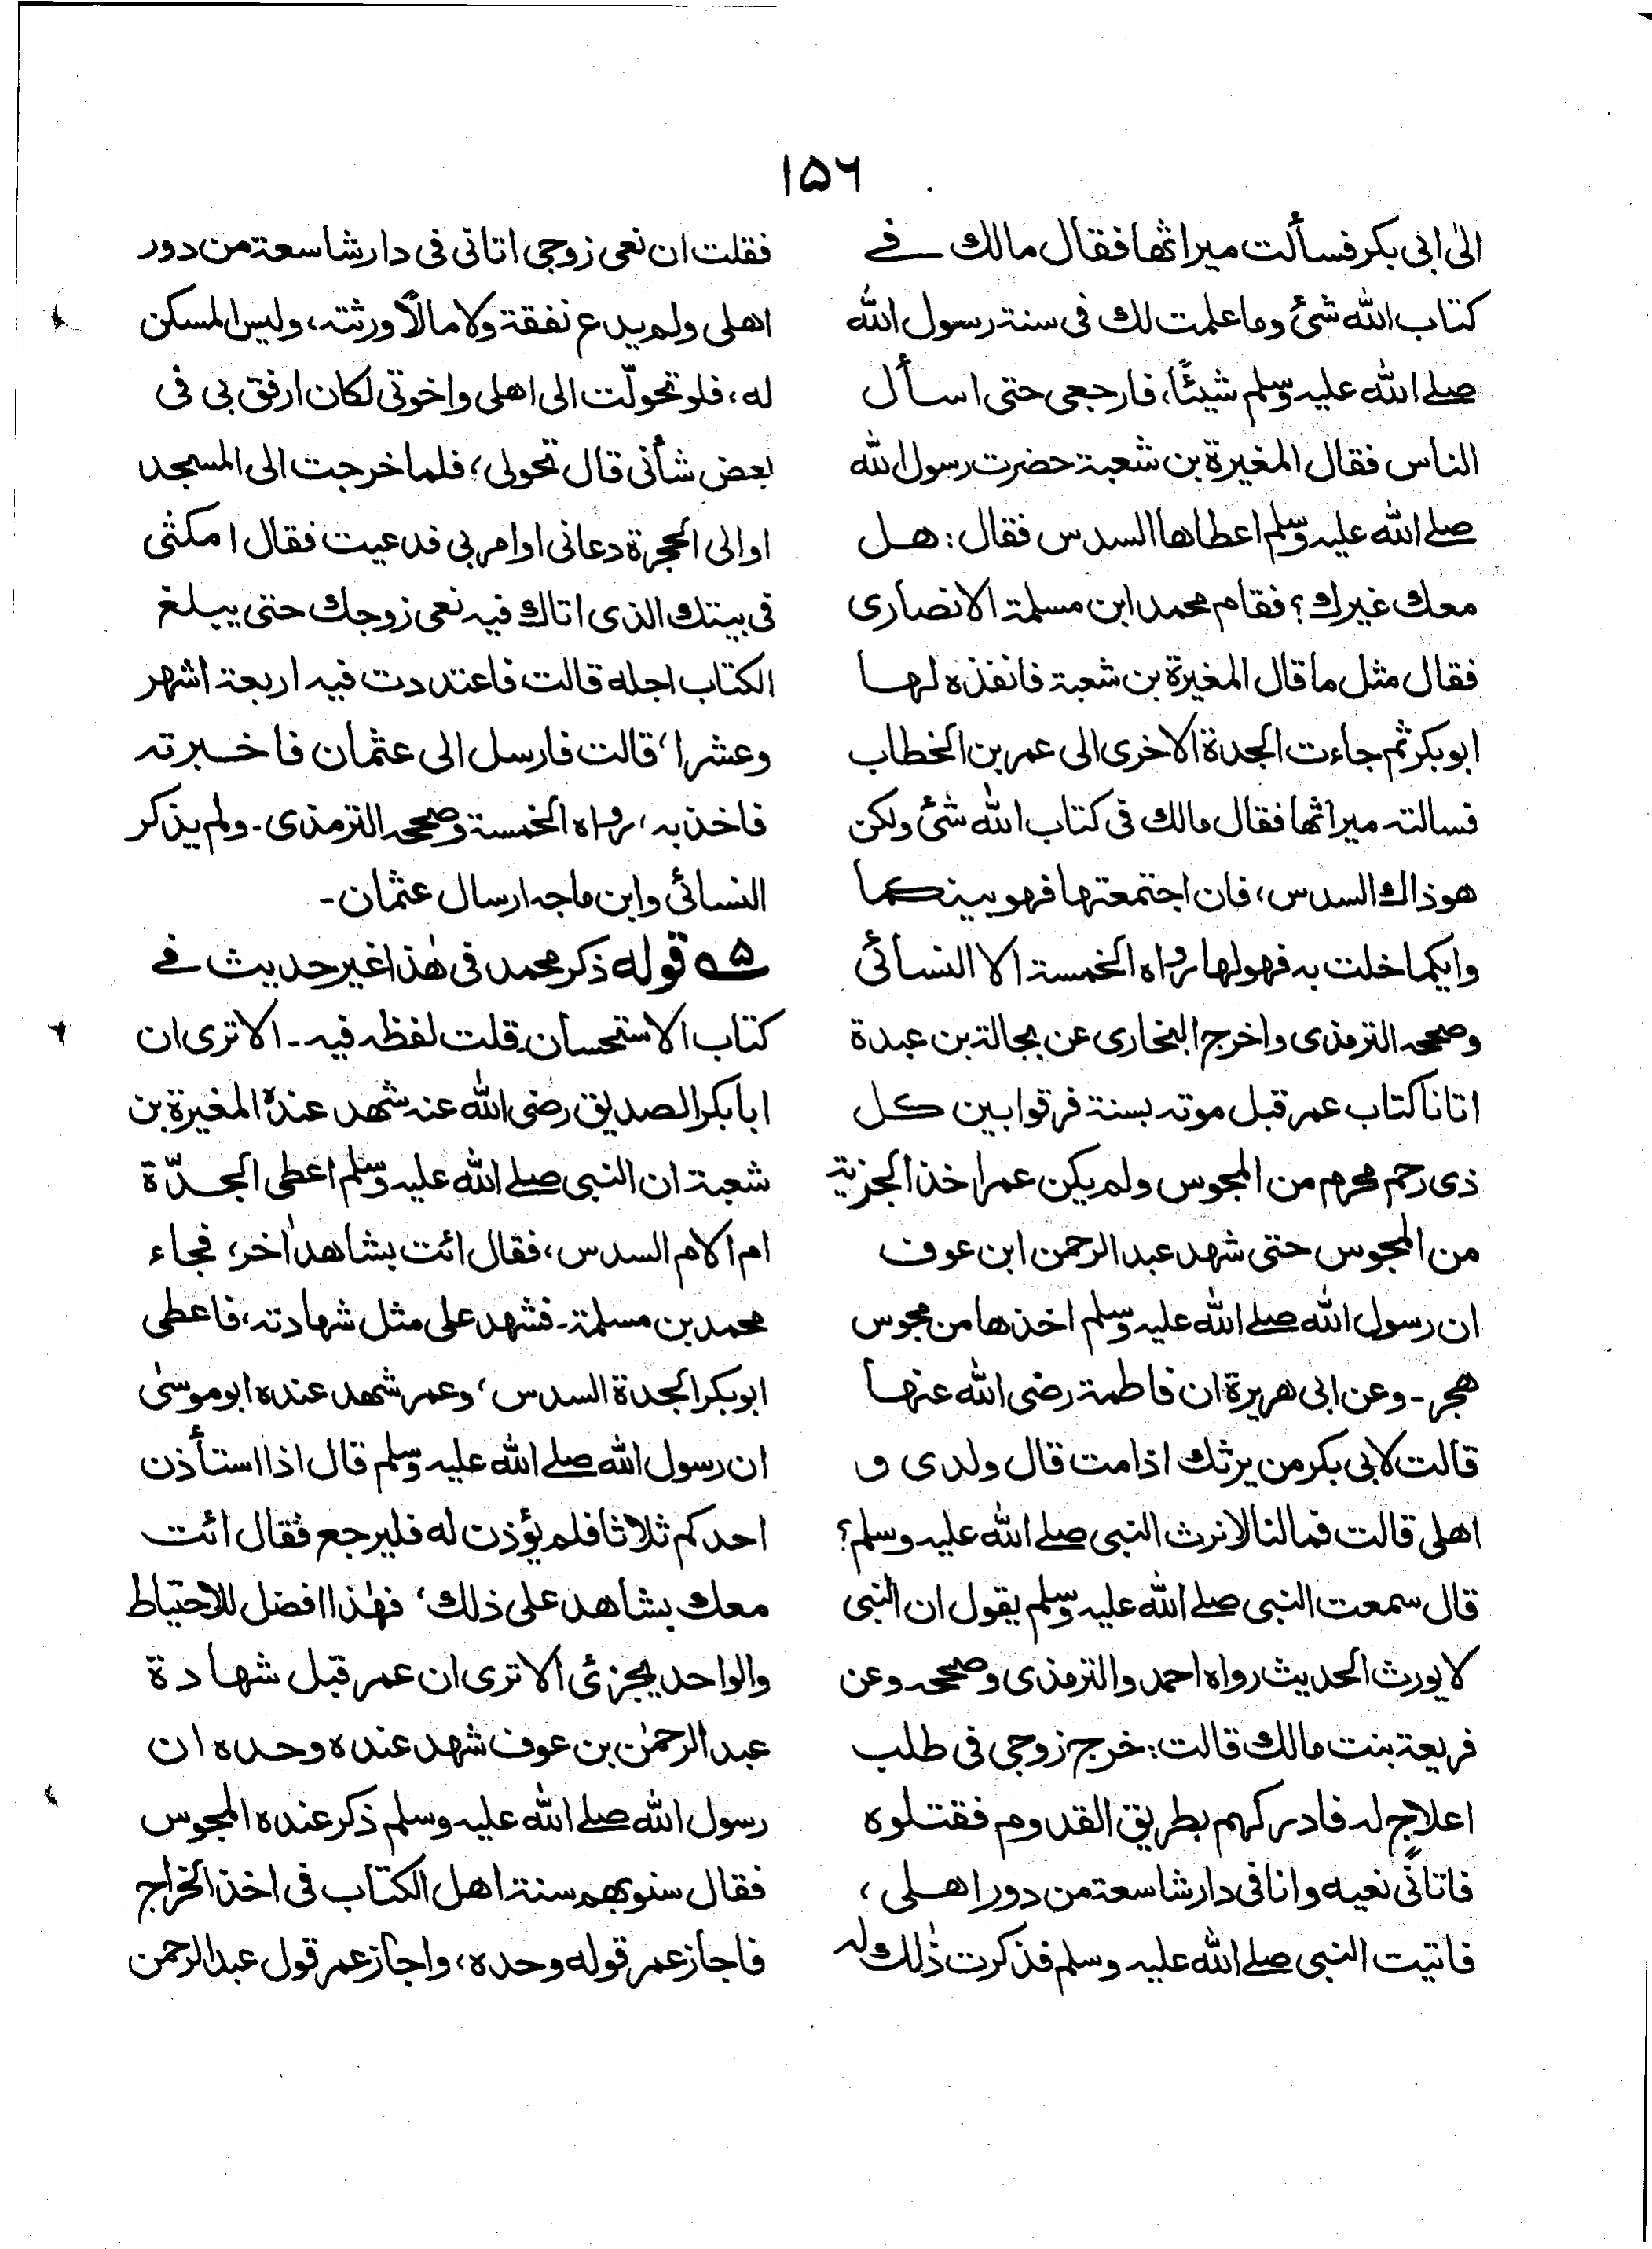 ۱۵۶
الىٰ ابى بكر فسألت ميراثها فقال مالك فے
كتاب الله شئ وما علمت لك فى سنة رسول الله
صلے الله عليه وسلم شيئًا، فارجعى حتى اسأل
الناس فقال المغيرة بن شعبة حضرت رسول الله
صلے الله عليه وسلم اعطاها السدس فقال: هل
معك غيرك؟ فقام محمد ابن مسلمة الانصارى
فقال مثل ما قال المغيرة بن شعبة فانفذه لها
ابو بكر ثم جاءت الجدة الاخرى الى عمر بن الخطاب
فسالته ميراثها فقال مالك فى كتاب الله شئ ولكن
هو ذاك السدس، فان اجتمعتها فهو بينكما
وايكما خلت به فهو لها رواه الخمسة الا النسائى
وصححه الترمذى واخرج البخارى عن بجالة بن عبدة
اتانا كتاب عمر قبل موته بسنة فرقوا بين كل
ذى رحم محرم من المجوس ولم يكن عمر اخذ الجزية
من المجوس حتى شهد عبد الرحمن ابن عوف
ان رسول الله صلے الله عليه وسلم اخذها من مجوس
هجر ـ وعن ابى هريرة ان فاطمة رضى الله عنها
قالت لابى بكر من يرثك اذا مت قال ولدى و
اهلى قالت فما لنا لا نرث النبى صلے الله عليه وسلم؟
قال سمعت النبى صلے الله عليه وسلم يقول ان النبى
لا يورث الحديث رواه احمد والترمذى وصححه وعن
فريعة بنت مالك قالت: خرج زوجى فى طلب
اعلاج له فادركهم بطريق القدوم فقتلوه
فاتانى نعيه وانا فى دار شاسعة من دور اهلى ،
فاتيت النبى صلے الله عليه وسلم فذكرت ذٰلك له
فقلت ان نعى زوجى اتانى فى دار شاسعة من دور
اهلى ولم يدع نفقة ولا مالاً ورثته، وليس المسكن
له، فلو تحولّت الى اهلى واخوتى لكان ارفق بى فى
بعض شأنى قال تحولى، فلما خرجت الى المسجد
او الى الحجرة دعانى او امر بى فدعيت فقال امكثى
فى بيتك الذى اتاك فيه نعى زوجك حتى يبلغ
الكتاب اجله قالت فاعتددت فيه اربعة اشهر
وعشرا، قالت فارسل الى عثمان فاخبرته
فاخذ به، رواه الخمسة وصححه الترمذى ـ ولم يذكر
النسائى وابن ماجه ارسال عثمان ـ
۵ قوله ذكر محمد فى هٰذا غير حديث فے
كتاب الاستحسان قلت لفظه فيه ـ الا ترى ان
ابا بكر الصديق رضى الله عنه شهد عنده المغيرة بن
شعبة ان النبى صلے الله عليه وسلم اعطى الجدّة
ام الام السدس، فقال ائت بشاهد اٰخر، فجاء
محمد بن مسلمة ـ فشهد على مثل شهادته، فاعطى
ابو بكر الجدة السدس، وعمر شهد عنده ابو موسىٰ
ان رسول الله صلے الله عليه وسلم قال اذا استأذن
احدكم ثلاثا فلم يؤذن له فليرجع فقال ائت
معك بشاهد على ذلك، فهٰذا افضل للاحتياط
والواحد يجزئ الا ترى ان عمر قبل شهادة
عبد الرحمٰن بن عوف شهد عنده وحده ان
رسول الله صلے الله عليه وسلم ذكر عنده المجوس
فقال سنوا بهم سنة اهل الكتاب فى اخذ الخراج
فاجاز عمر قوله وحده، واجاز عمر قول عبد الرحمن